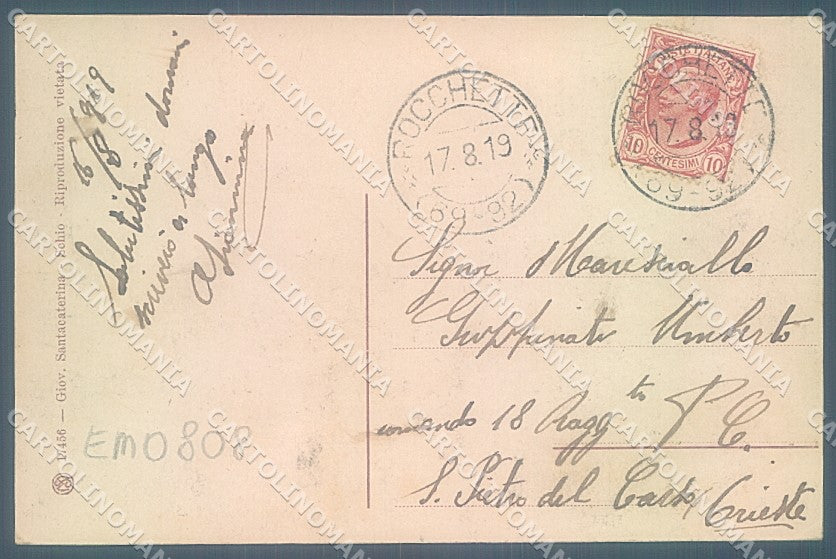 17456 — Giov. Santacaterina - Schio - Riproduzione vietata
16/8/919
Salutissimi domani
scriverò a lungo
EM0808
ROCCHETTE
17.8.19
(69-92)
POSTE ITALIANE
10 CENTESIMI 10
ROCCHETTE
17.8.19
(69-92)
Signor Maresciallo
Umberto
comando 18 Ragg.to P. C.
S. Pietro del Carso
Trieste
CARTOLINOMANIA